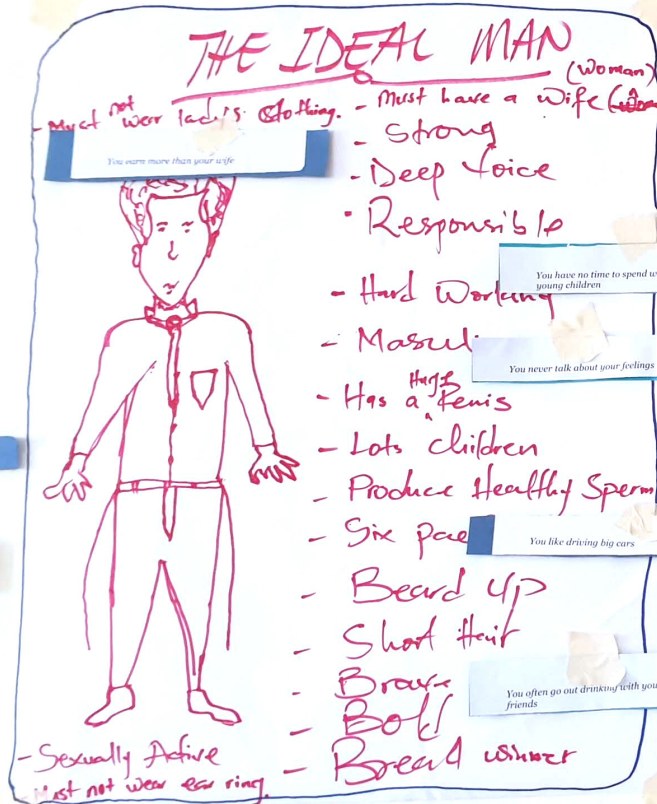 THE IDEAL MAN
(Woman)
- Must not wear ladis clothing.
You earn more than your wife
- Must have a wife
- Strong
- Deep Voice
- Responsible
You have no time to spend w
young children
- Hard Working
- Mascul
You never talk about your feelings
- Has a Huge Penis
- Lots children
- Produce Healthy Sperm
- Six pac
You like driving big cars
- Beard up
- Short Hair
- Brave
You often go out drinking with you
friends
- Bold
- Bread winner
- Sexually Active
- Must not wear ear ring.